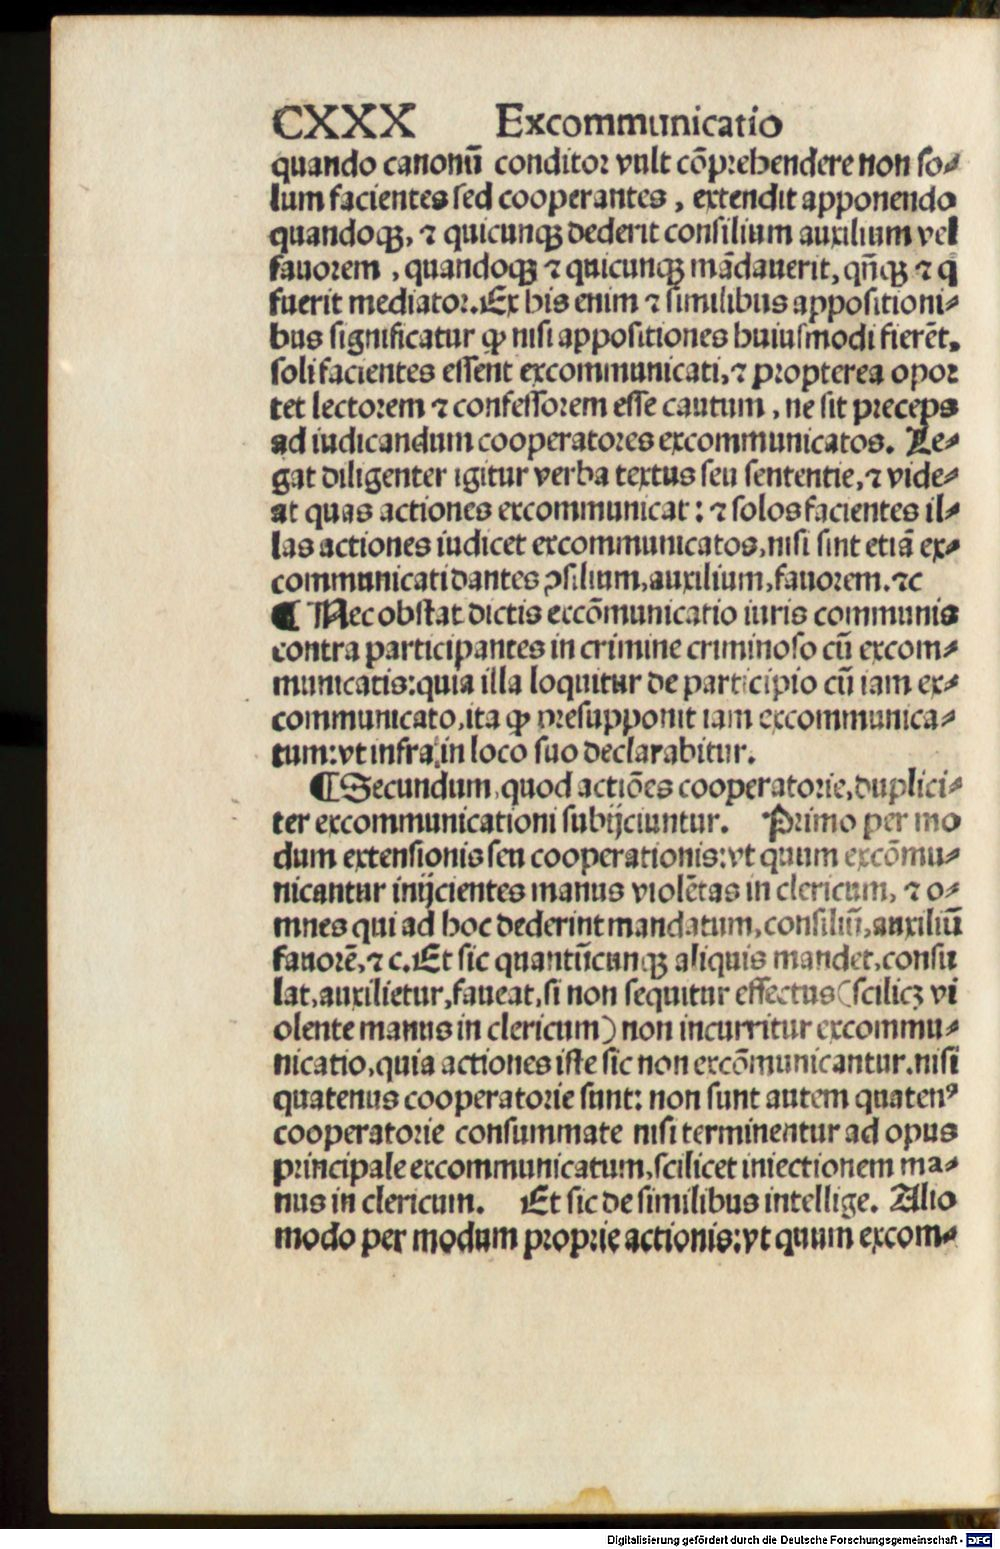 CXXX Excommunicatio
quando canonū conditor vult cōprehendere non so⸗
lum facientes sed cooperantes, extendit apponendo
quandoqꝫ, ⁊ quicunqꝫ dederit consilium auxilium vel
fauorem, quandoqꝫ ⁊ quicunqꝫ mādauerit, qn̄qꝫ ⁊ q̄
fuerit mediator. Ex his enim ⁊ similibus appositioni⸗
bus significatur ꝙ nisi appositiones huiusmodi fierēt,
soli facientes essent excommunicati, ⁊ propterea opor
tet lectorem ⁊ confessorem esse cautum, ne sit preceps
ad iudicandum cooperatores excommunicatos. Le⸗
gat diligenter igitur verba textus seu sententie, ⁊ vide⸗
at quas actiones excommunicat: ⁊ solos facientes il⸗
las actiones iudicet excommunicatos, nisi sint etiā ex⸗
communicati dantes ꝯsilium, auxilium, fauorem. ⁊c
¶ Nec obstat dictis excōmunicatio iuris communis
contra participantes in crimine criminoso cū excom⸗
municatis: quia illa loquitur de participio cū iam ex⸗
communicato, ita ꝙ presupponit iam excommunica⸗
tum: vt infra in loco suo declarabitur.
¶ Secundum, quod actiōes cooperatorie, duplici⸗
ter excommunicationi subijciuntur. Primo per mo
dum extensionis seu cooperationis: vt quum excōmu⸗
nicantur inijcientes manus violētas in clericum, ⁊ o⸗
mnes qui ad hoc dederint mandatum, consiliū, auxiliū
fauorē, ⁊ c. Et sic quantūcunqꝫ aliquis mandet, consu
lat, auxilietur, faueat, si non sequitur effectus (scilicꝫ vi
olente manus in clericum) non incurritur excommu⸗
nicatio, quia actiones iste sic non excōmunicantur. nisi
quatenus cooperatorie sunt: non sunt autem quatenꝰ
cooperatorie consummate nisi terminentur ad opus
principale excommunicatum, scilicet iniectionem ma⸗
nus in clericum. Et sic de similibus intellige. Alio
modo per modum proprie actionis: vt quum excom⸗
Digitalisierung gefördert durch die Deutsche Forschungsgemeinschaft - DFG